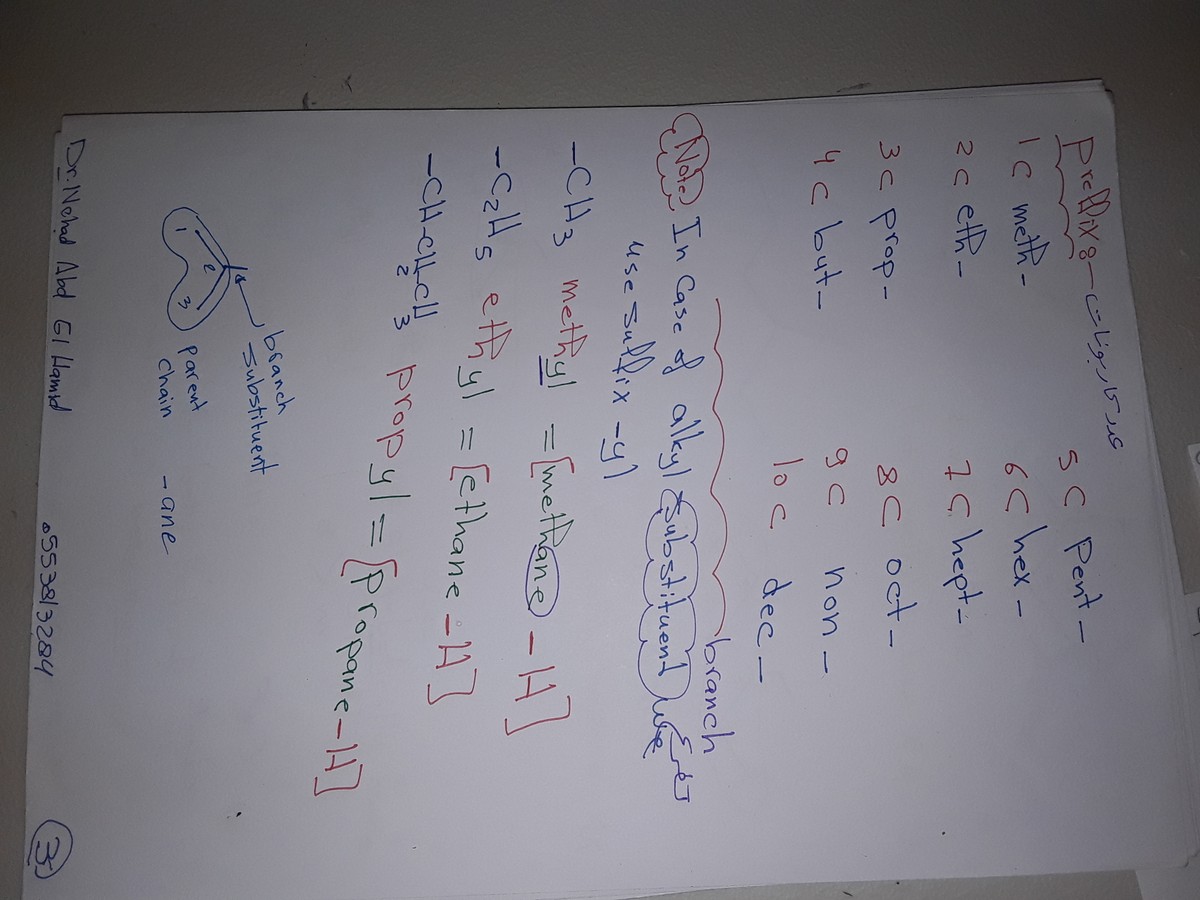 Preffix :- عدد الكربونات
1 C meth-
2 C eth-
3 C prop-
4 C but-
5 C pent-
6 C hex-
7 C hept-
8 C oct-
9 C non-
10 C dec-
branch
Note: In Case of alkyl Substituend فرع
use suffix -yl
-CH3 methyl = [methane -H]
-C2H5 ethyl = [ethane -H]
-CH-CH2CH3 propyl = [Propane -H]
branch
substituent
1 2 3
parent
chain -ane
Dr. Nehad Abd El Hamid 0553813284
3